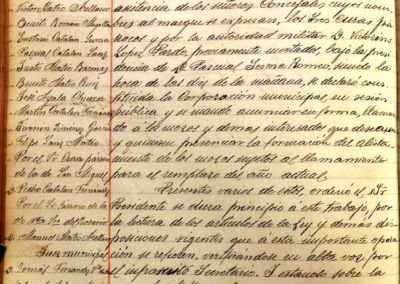 Victor Mateo Arellano
Benito Romero
Gregorio Catalan Fernandez
Pascual Catalan Sanz
Justo Mateo Barnuos
Benito Mateo Ruiz
José Ayala Chueca
Martin Catalan Fernandez
Jimenez Garcia
Felipe Sanz Mateo
Por el Sr. Cura parroco
de la de San Miguel
D. Pedro Catalan Fernandez
Por el Sr. parroco de la
de Ntra. Sra. del Rosario
D. Manuel Mateo Arellano
Juez municipal
D. Tomás Fernandez
asistencia de los señores Concejales cuyos nom-
bres al margen se expresan, los Sres Curas pár-
rocos y por la autoridad militar D. Victorino
Lopez Pardo, préviamente invitados, bajo la presi-
dencia de D. Pascual Gomez Romeo, siendo la
hora de las diez de la mañana, se declaró cons-
tituida la Corporacion municipal, en sesion
pública, y se mandó anunciar en forma, llaman-
do á los mozos y demas interesados que deseasen
y quisiesen presenciar la formacion del Alista-
miento de los mozos sujetos al llamamiento
para el reemplazo del año actual.
Presentes varios de estos, ordenó el Sr.
Presidente se diera principio á este trabajo por
la lectura de los artículos de la Ley y demas dis-
posiciones vigentes que á esta importante opera-
cion se refieren, verificándose en alta voz por
el infrascrito Secretario. I estando sobre la